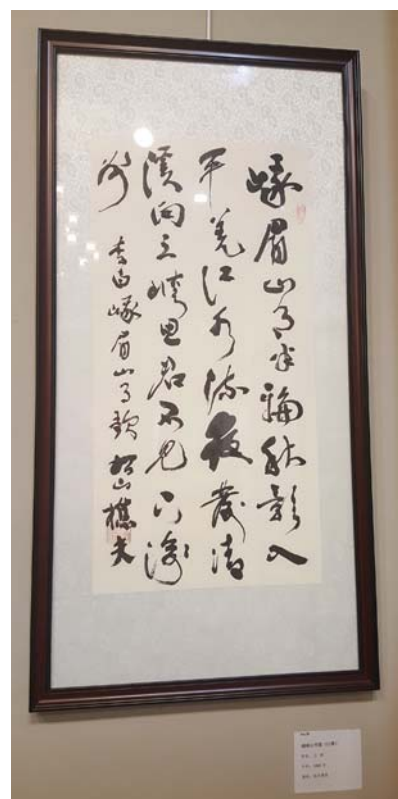 峨眉山月半輪秋影入
平羌江水流夜發清
溪向三峽思君不見下渝
州
李白峨眉山月歌 山樵夫